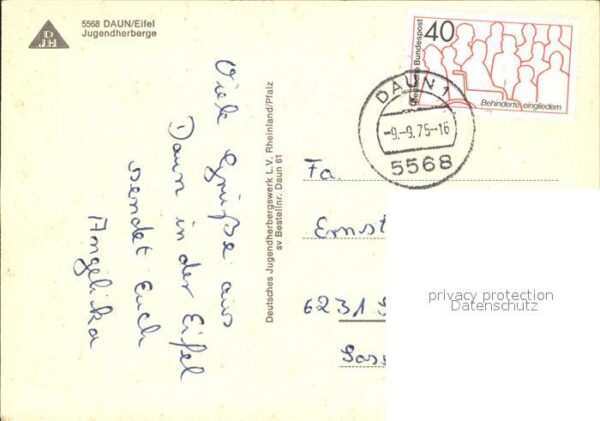 DJH
5568 DAUN/Eifel
Jugendherberge
Viele Grüße aus
Daun in der Eifel
sendet Euch
Angelika
Deutsches Jugendherbergswerk L.V. Rheinland/Pfalz
sv Bestellnr. Daun 61
40
Deutsche Bundespost
Behinderte eingliedern
DAUN 1
-9.-9.75-16
5568
Fa.
Ernst
6231
privacy protection
Datenschutz